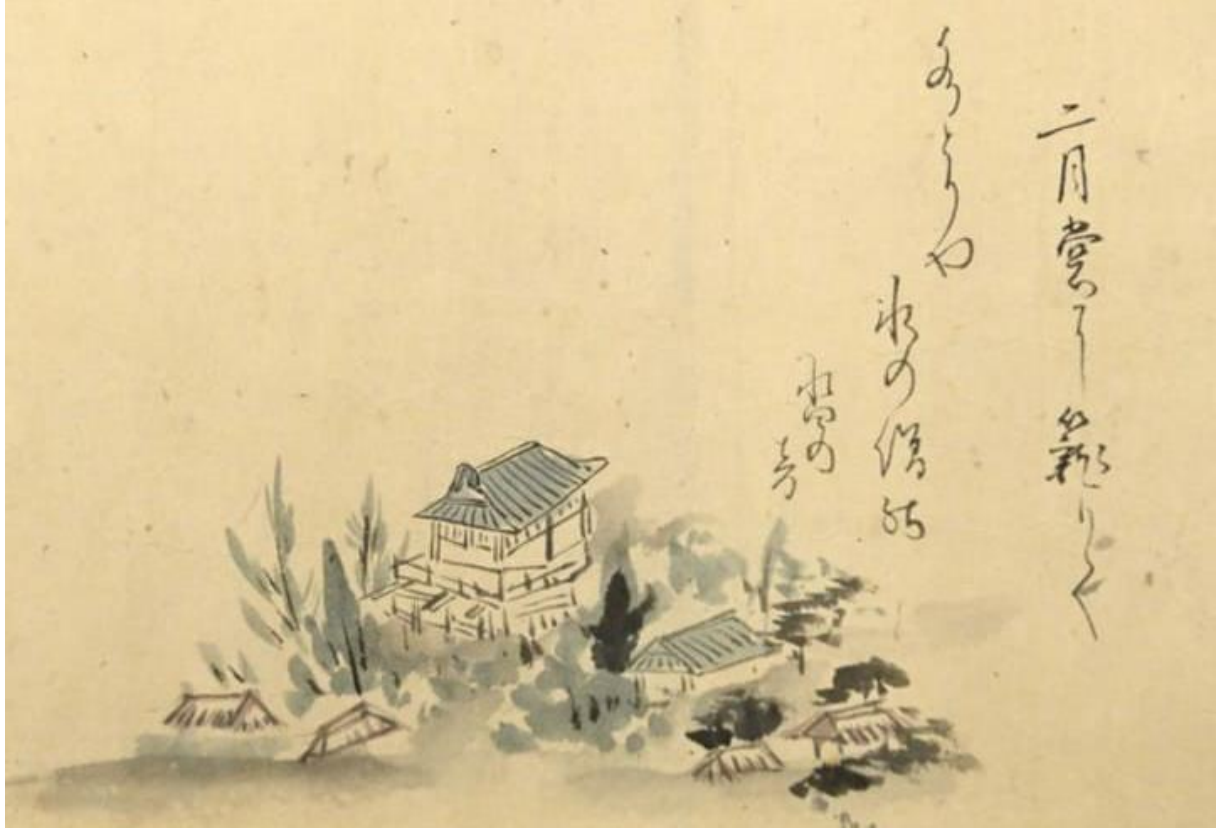 二月堂に籠りて
水とりや
氷の僧の
沓の
音